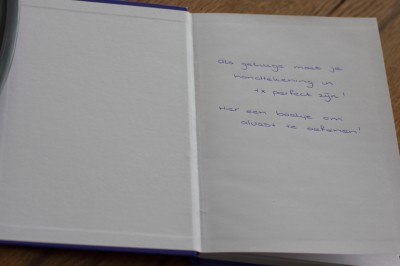 Als getuige moet je
handtekening in
te perfect zijn!
Hier een boekje om
alvast te oefenen!